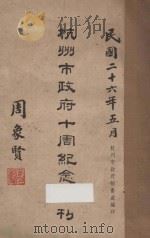 民國二十六年五月
杭州市政府秘書處編印
杭州市政府十周紀念特刊
周象賢